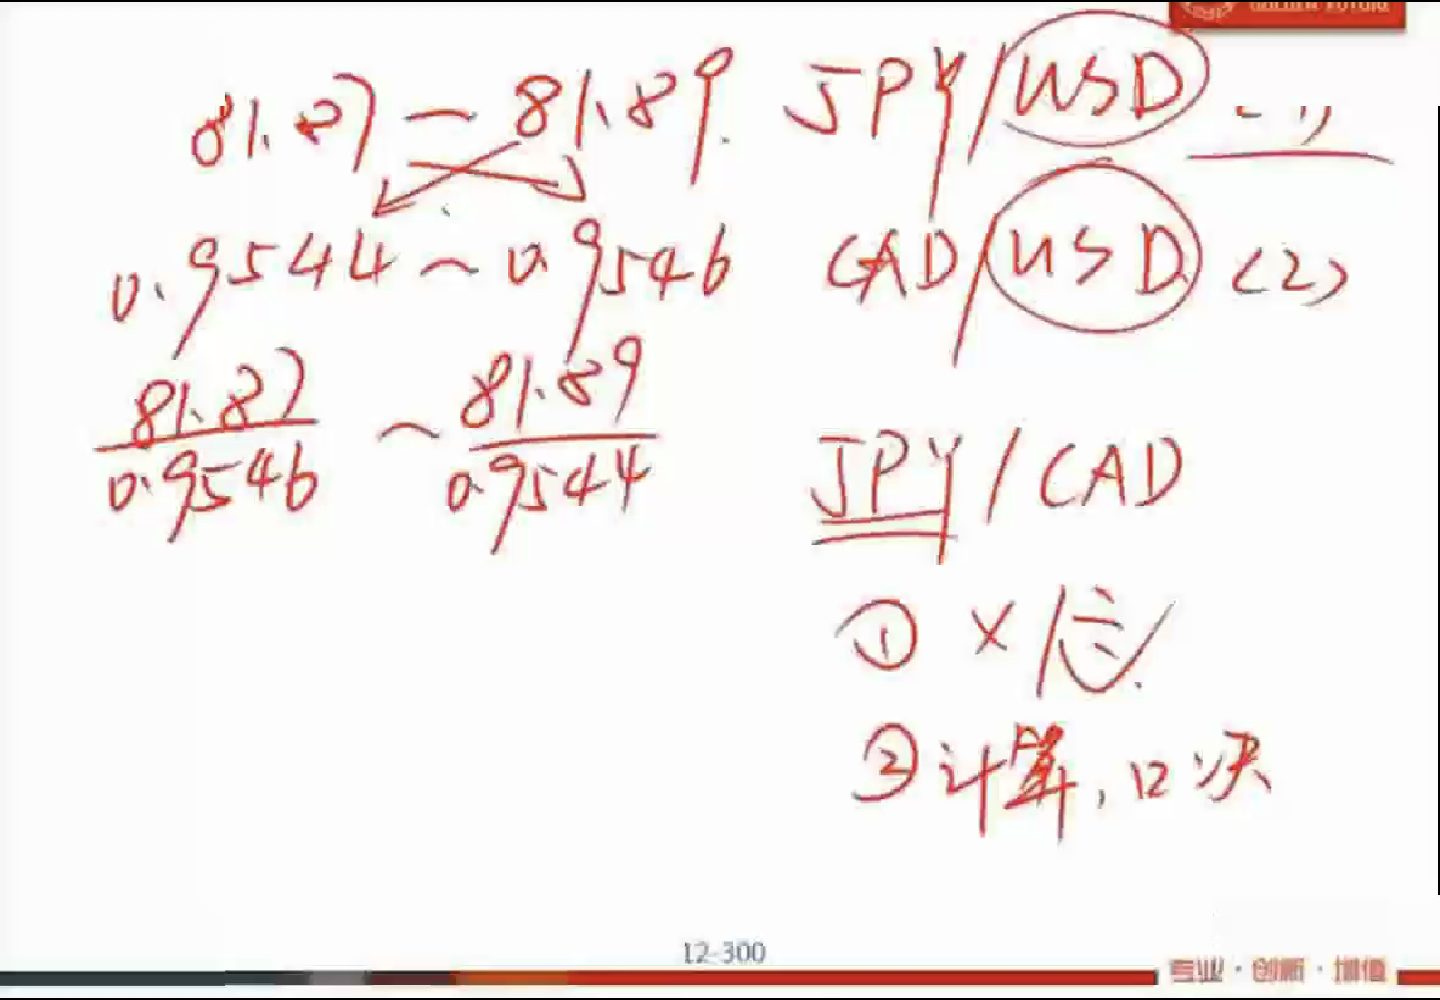 81.87 — 81.89 JPY/USD
0.9544 ~ 0.9546 CAD/USD (2)
81.87 ~ 81.89
0.9546 0.9544 JPY/CAD
① ×/÷
② 计算, 口决
12-300
专业·创新·增值